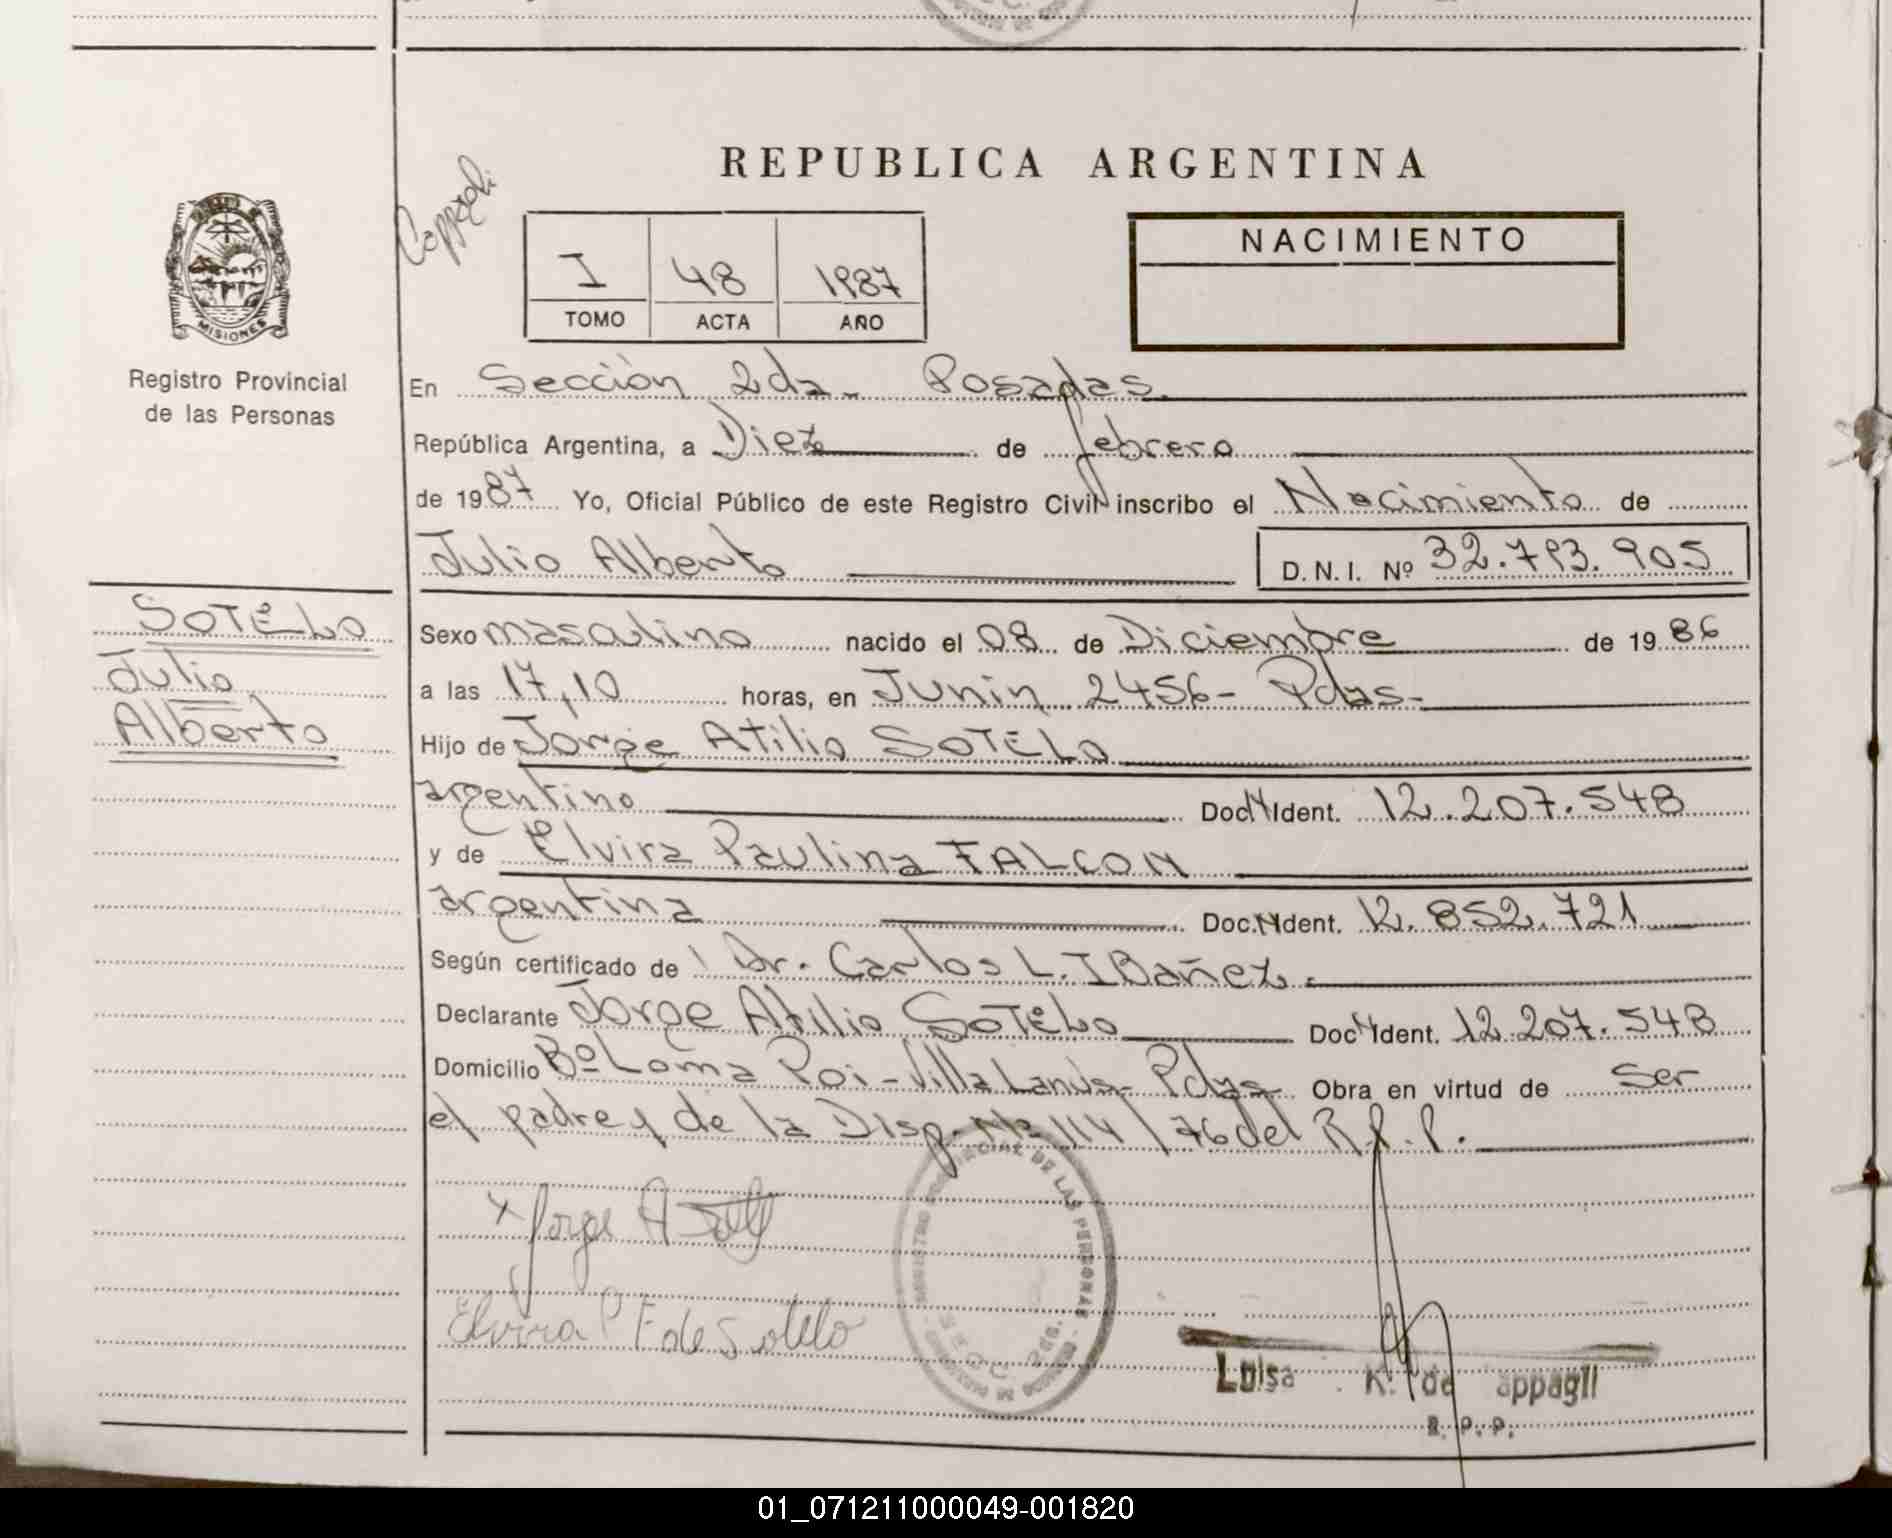 Coppagli
REPUBLICA ARGENTINA
I 48 1987
TOMO ACTA AÑO
NACIMIENTO
MISIONES
Registro Provincial
de las Personas
En Sección 2da. Posadas.
República Argentina, a Diez de febrero
de 1987 Yo, Oficial Público de este Registro Civil inscribo el Nacimiento de
Julio Alberto D.N.I. Nº 32.793.905
SOTELO
Julio
Alberto
Sexo masculino nacido el 08 de Diciembre de 1986
a las 17,10 horas, en Junin 2456- Pdas-
Hijo de Jorge Atilio SOTELO
argentino Doc. N Ident. 12.207.548
y de Elvira Paulina FALCON
argentina Doc. N Ident. 12.852.721
Según certificado de Dr. Carlos L. IBañez.
Declarante Jorge Atilio SOTELO Doc N Ident. 12.207.548
Domicilio Bº Loma Poi - Villa Lanús - Pdas Obra en virtud de ser
el padre y de la Disp. Nº 114/76 del R.P.P.
x Jorge A Sotelo
Elvira P F de Sotelo
REGISTRO PROVINCIAL DE LAS PERSONAS
Luisa K. de appagli
R. P. P.
01_071211000049-001820